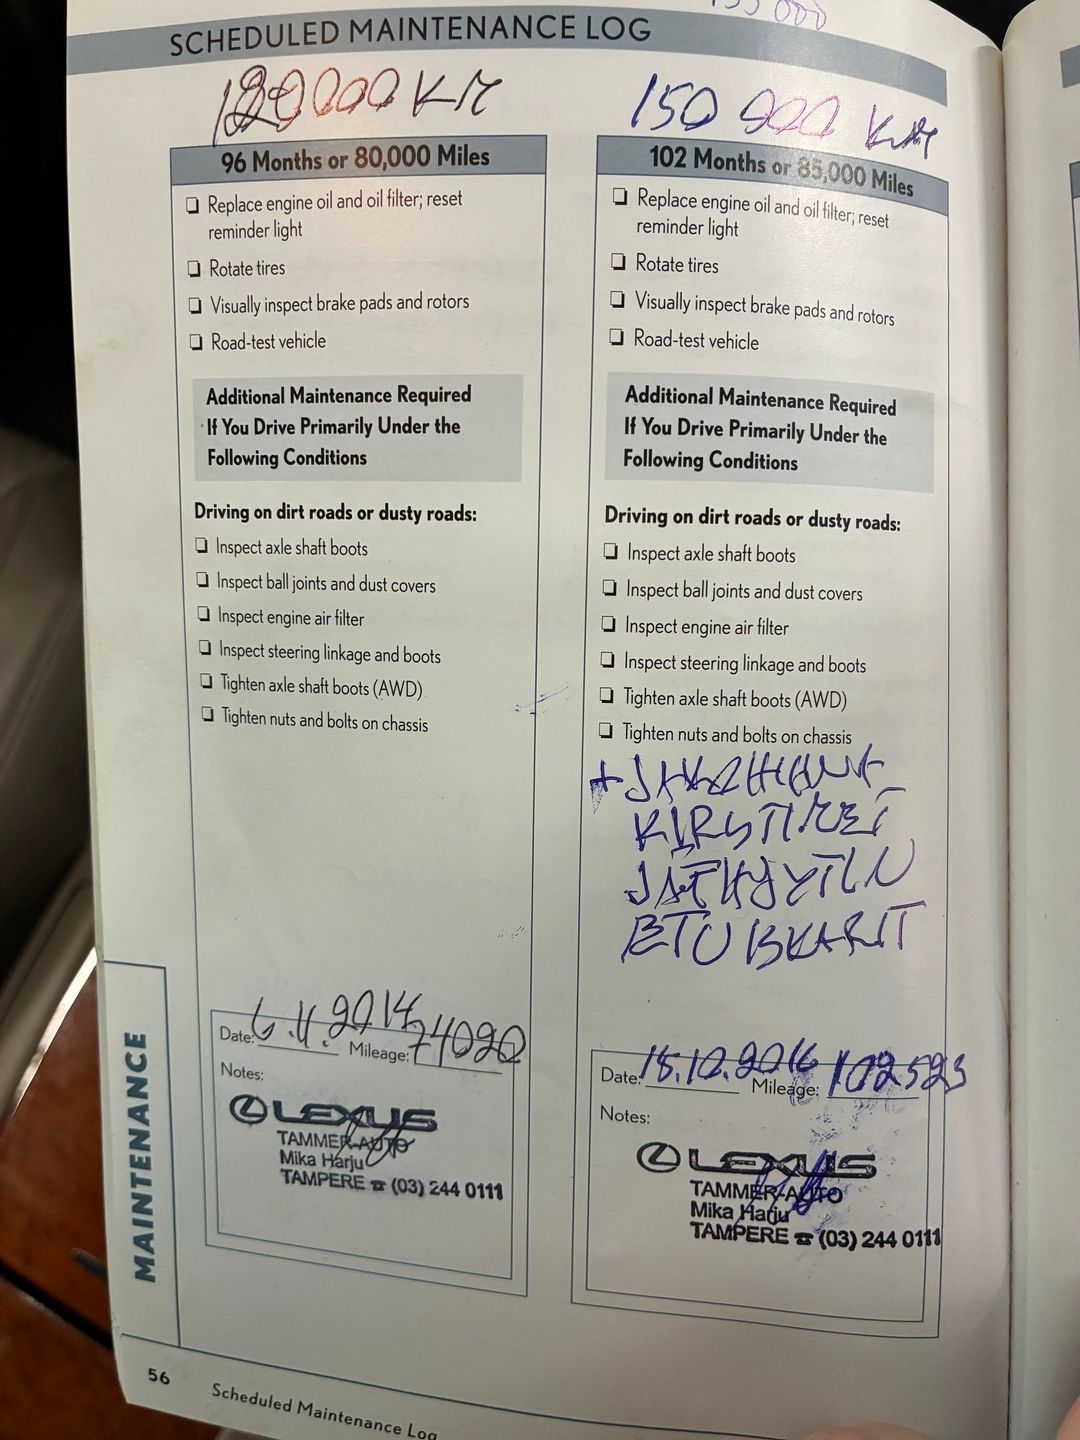 SCHEDULED MAINTENANCE LOG
120000 KM
96 Months or 80,000 Miles
Replace engine oil and oil filter; reset
reminder light
Rotate tires
Visually inspect brake pads and rotors
Road-test vehicle
Additional Maintenance Required
If You Drive Primarily Under the
Following Conditions
Driving on dirt roads or dusty roads:
Inspect axle shaft boots
Inspect ball joints and dust covers
Inspect engine air filter
Inspect steering linkage and boots
Tighten axle shaft boots (AWD)
Tighten nuts and bolts on chassis
Date: 6.11.2014 Mileage: 74020
Notes:
LEXUS
TAMMER-AUTO
Mika Harju
TAMPERE ☎ (03) 244 0111
150 000 KM
102 Months or 85,000 Miles
Replace engine oil and oil filter; reset
reminder light
Rotate tires
Visually inspect brake pads and rotors
Road-test vehicle
Additional Maintenance Required
If You Drive Primarily Under the
Following Conditions
Driving on dirt roads or dusty roads:
Inspect axle shaft boots
Inspect ball joints and dust covers
Inspect engine air filter
Inspect steering linkage and boots
Tighten axle shaft boots (AWD)
Tighten nuts and bolts on chassis
+ JAKOHIHNA
KIRISTIMET
JÄÄHDYTIN
ETU ISKARIT
Date: 18.10.2016 Mileage: 102523
Notes:
LEXUS
TAMMER-AUTO
Mika Harju
TAMPERE ☎ (03) 244 0111
MAINTENANCE
56 Scheduled Maintenance Log